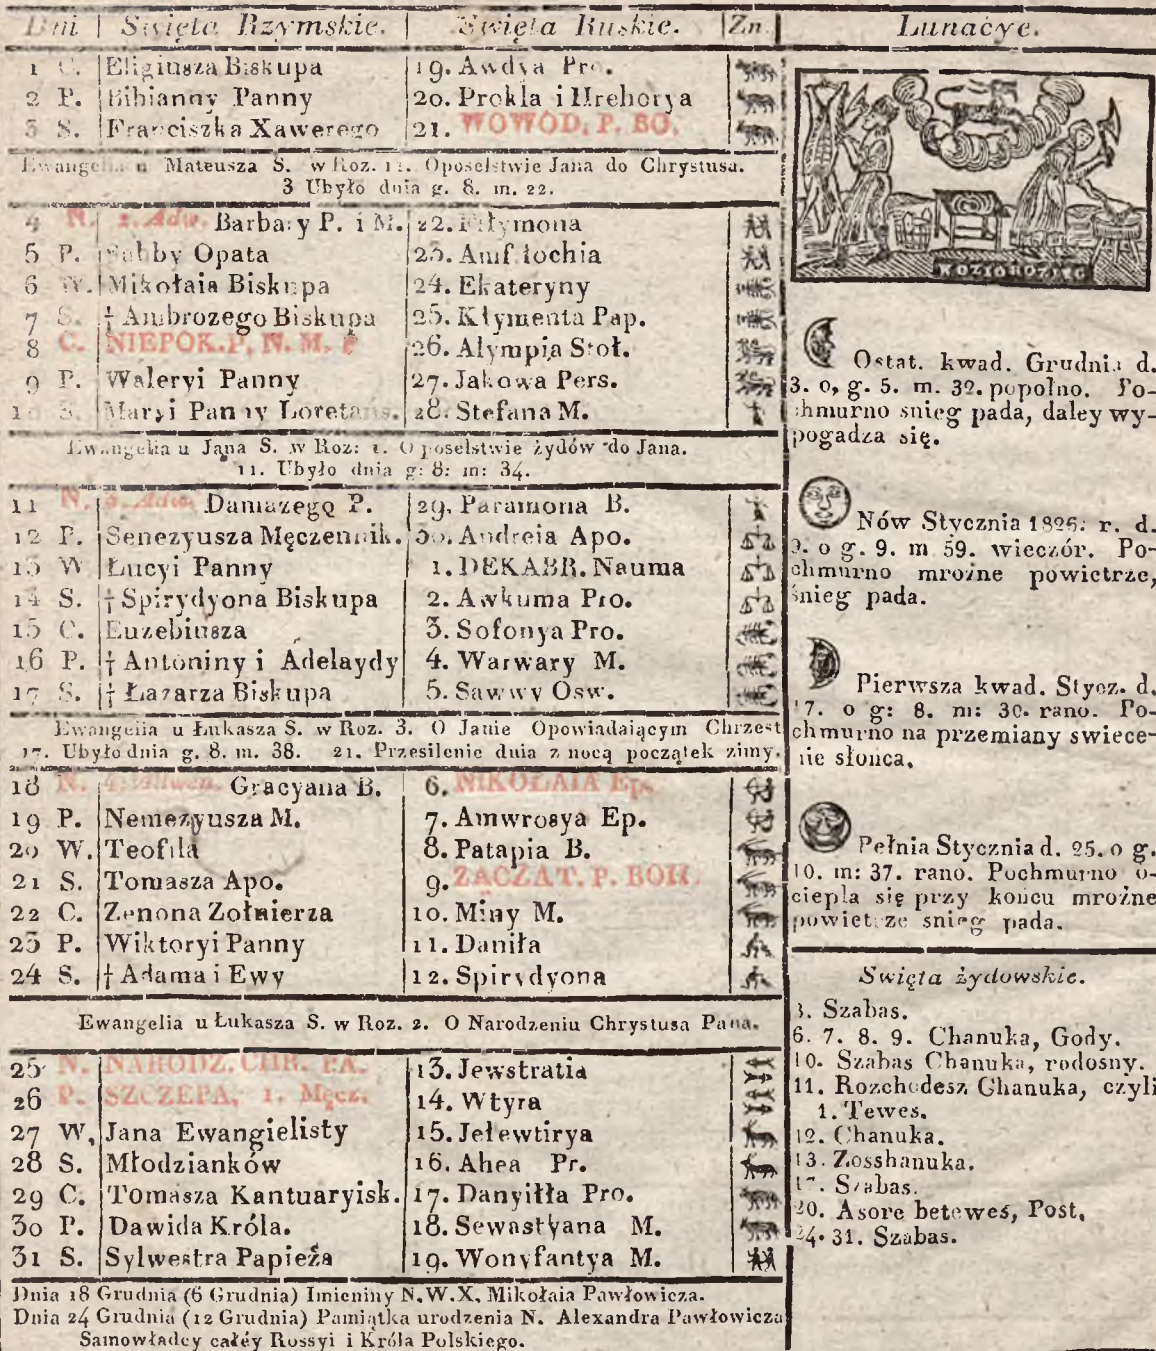 Dni | Swięta Rzymskie. | Swięta Ruskie. |Zn.| Lunacye.
1 C. Eligiusza Biskupa 19. Awdya Pro.
2 P. Bibianny Panny 20. Prokla i Hrehorya
3 S. Franciszka Xawerego 21. WOWOD. P. BO.
Ewangelia u Mateusza S. w Roz. 11. Oposelstwie Jana do Chrystusa.
3 Ubyło dnia g. 8. m. 22.
4 N. 2. Adw. Barbary P. i M. 22. Fiłymona
5 P. Sabby Opata 23. Amfiłochia
6 W. Mikołaia Biskupa 24. Ekateryny
7 S. † Ambrozego Biskupa 25. Kłymenta Pap.
8 C. NIEPOK. P. N. M. P 26. Alympia Stoł.
9 P. Waleryi Panny 27. Jakowa Pers.
10 S. Maryi Panny Loretans. 28. Stefana M.
Ewangelia u Jana S. w Roz: 1. O poselstwie żydów do Jana.
11. Ubyło dnia g: 8: m: 34.
11 N. 3. Adw. Damazego P. 29. Paramona B.
12 P. Senezyusza Męczennik. 30. Andreia Apo.
13 W Łucyi Panny 1. DEKABR. Nauma
14 S. † Spirydyona Biskupa 2. Awkuma Pro.
15 C. Euzebiusza 3. Sofonya Pro.
16 P. † Antoniny i Adelaydy 4. Warwary M.
17 S. † Łazarza Biskupa 5. Sawwy Osw.
Ewangelia u Łukasza S. w Roz. 3. O Janie Opowiadaiącym Chrzest
17. Ubyło dnia g. 8. m. 38. 21. Przesilenie dnia z nocą początek zimy.
18 N. Gracyana B. 6. NIKOŁAIA Ep.
19 P. Nemezyusza M. 7. Amwrosya Ep.
20 W. Teofila 8. Patapia B.
21 S. Tomasza Apo. 9. ZACZAT. P. BOH.
22 C. Zenona Zołnierza 10. Miny M.
23 P. Wiktoryi Panny 11. Daniła
24 S. † Adama i Ewy 12. Spirydyona
Ewangelia u Łukasza S. w Roz. 2. O Narodzeniu Chrystusa Pana.
25 N. NARODZ. CHR. PA. 13. Jewstratia
26 P. SZCZEPA, 1. Męcz. 14. Wtyra
27 W, Jana Ewangielisty 15. Jełewtirya
28 S. Młodzianków 16. Ahea Pr.
29 C. Tomasza Kantuaryisk. 17. Danyiłła Pro.
30 P. Dawida Króla. 18. Sewastyana M.
31 S. Sylwestra Papieża 19. Wonyfantya M.
Dnia 18 Grudnia (6 Grudnia) Imieniny N.W.X. Mikołaia Pawłowicza.
Dnia 24 Grudnia (12 Grudnia) Pamiątka urodzenia N. Alexandra Pawłowicza
Samowładcy całéy Rossyi i Króla Polskiego.
KOZIOROZIEC
Ostat. kwad. Grudnia d.
3. o, g. 5. m. 32. popołno. Po-
chmurno snieg pada, daley wy-
pogadza się.
Nów Stycznia 1826. r. d.
9. o g. 9. m 59. wieczór. Po-
chmurno mroźne powietrze,
śnieg pada.
Pierwsza kwad. Stycz. d.
17. o g: 8. m: 30. rano. Po-
chmurno na przemiany swiece-
nie słonca.
Pełnia Stycznia d. 25. o g.
10. m: 37. rano. Pochmurno o-
ciepla się przy koncu mroźne
powietrze snieg pada.
Swięta żydowskie.
3. Szabas.
6. 7. 8. 9. Chanuka, Gody.
10. Szabas Chanuka, rodosny.
11. Rozchodesz Chanuka, czyli
1. Tewes.
12. Chanuka.
13. Zosshanuka.
17. Szabas.
20. Asore betewes, Post,
24. 31. Szabas.